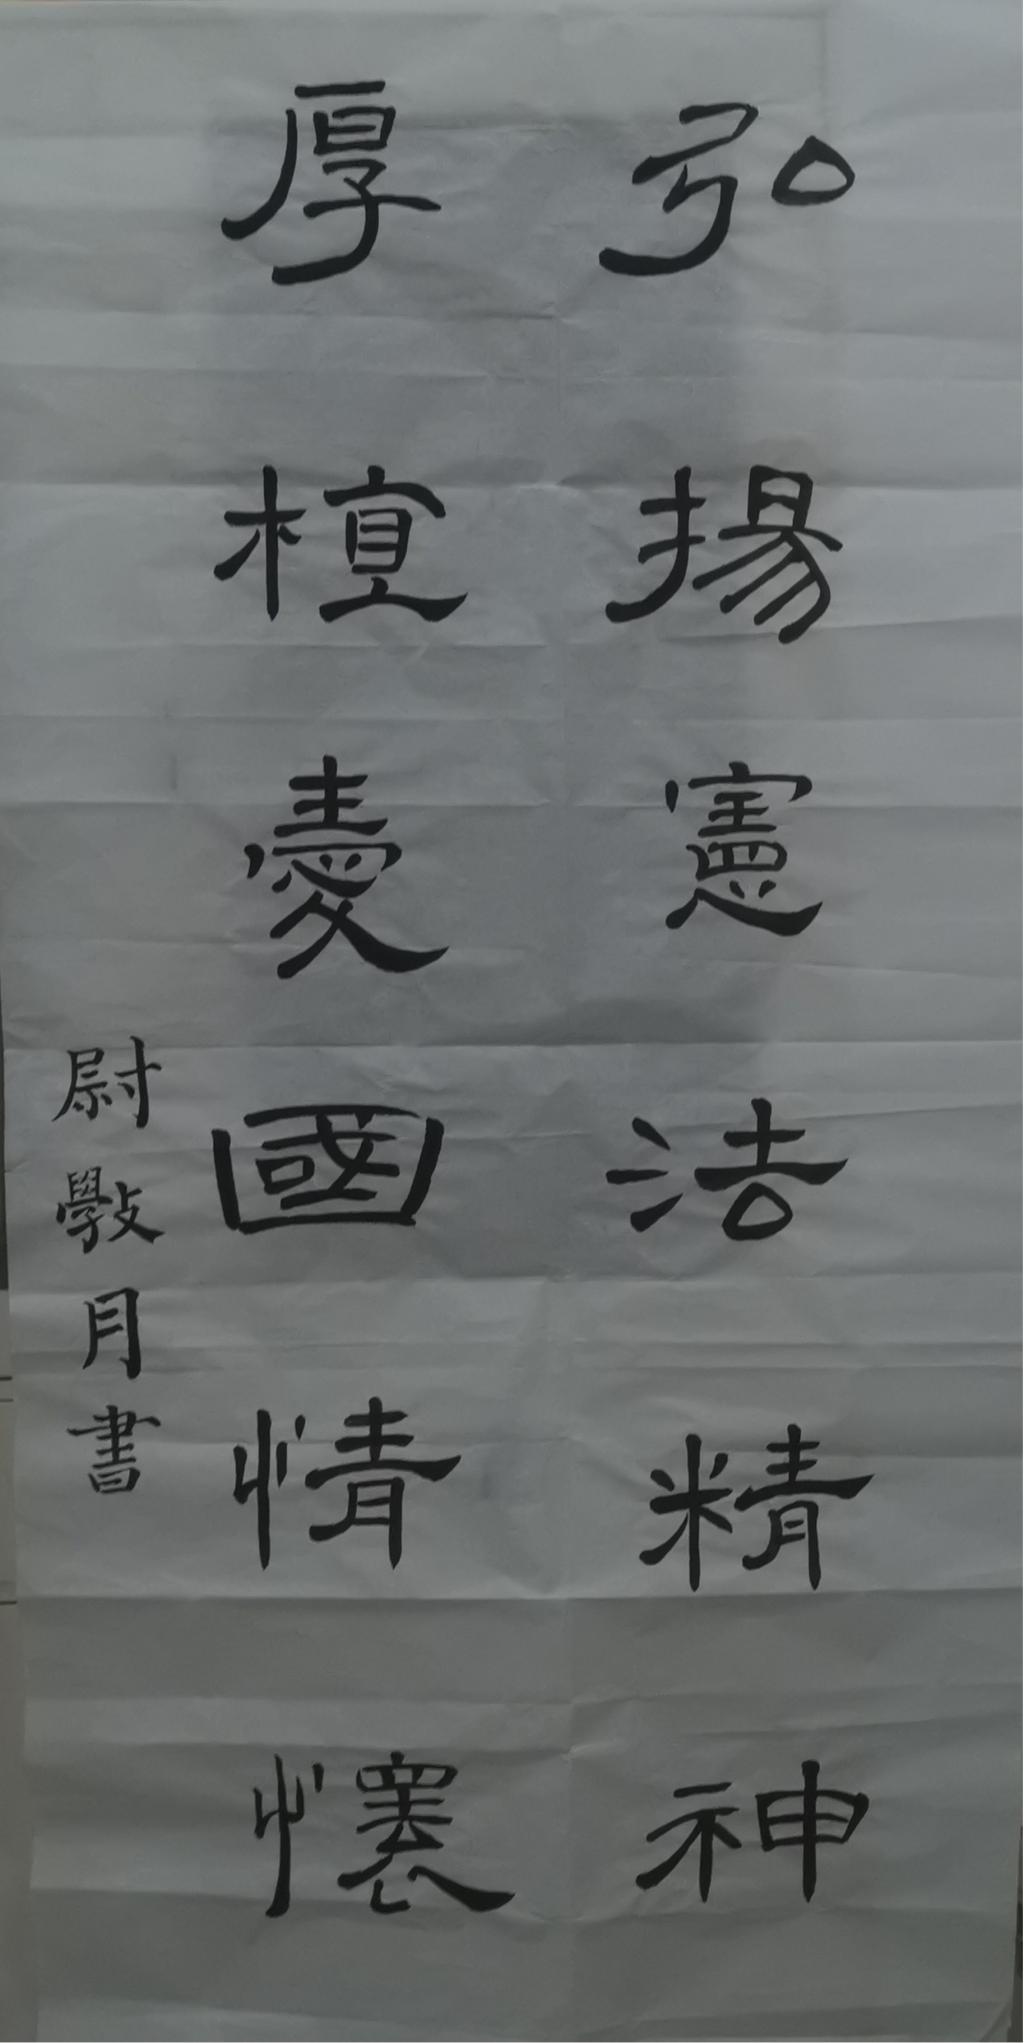 弘揚憲法精神
厚植愛國情懷
尉斅月書